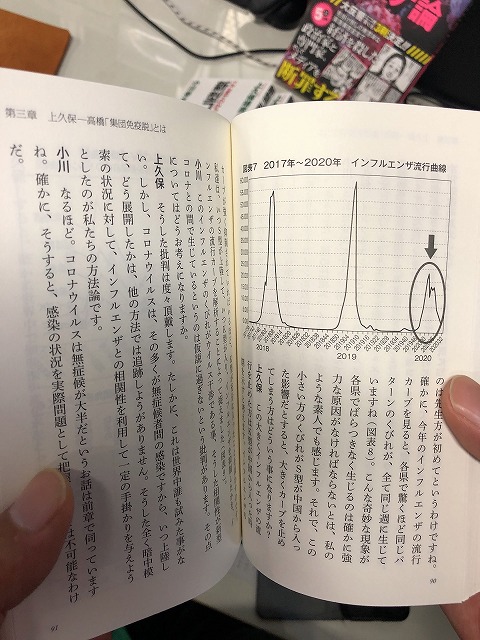 図表7 2017年～2020年 インフルエンザ流行曲線
2018
2019
2020
のは先生方が初めてというわけですね。
確かに、今年のインフルエンザの流行
カーブを見ると、各県で驚くほど同じパ
ターンのくびれが、全て同じ週に生じて
いますね（図表8）。こんな奇妙な現象が
各県でばらつきなく生じるのは確かに強
力な原因がなければならないとは、私の
ような素人でも感じます。それで、この
小さい方のくびれがS型が中国から入っ
た影響だとすると、大きくカーブを止め
てしまう方はどういう事になりますか？
上久保 この大きくインフルエンザの流
90
第三章 上久保―高橋「集団免疫説」とは
小川 このインフルエンザのくびれが
コロナとの間で生じているというのは仮説に過ぎないという批判があります。その点
についてはどうお考えになりますか。
上久保 そうした批判は度々頂戴します。たしかに、これは世界中誰も試みた事がな
い。しかし、コロナウイルスは、その多くが無症候者間の感染ですから、いつ上陸し
て、どう展開したかは、他の方法では追跡しようがありません。そうした全く暗中模
索の状況に対して、インフルエンザとの相関性を利用して一定の手掛かりを与えよう
としたのが私たちの方法論です。
小川 なるほど。コロナウイルスは無症候が大半だというお話は前章で伺っています
ね。確かに、そうすると、感染の状況を実際問題として把
は不可能なわけ
だ。
91
論
断罪する